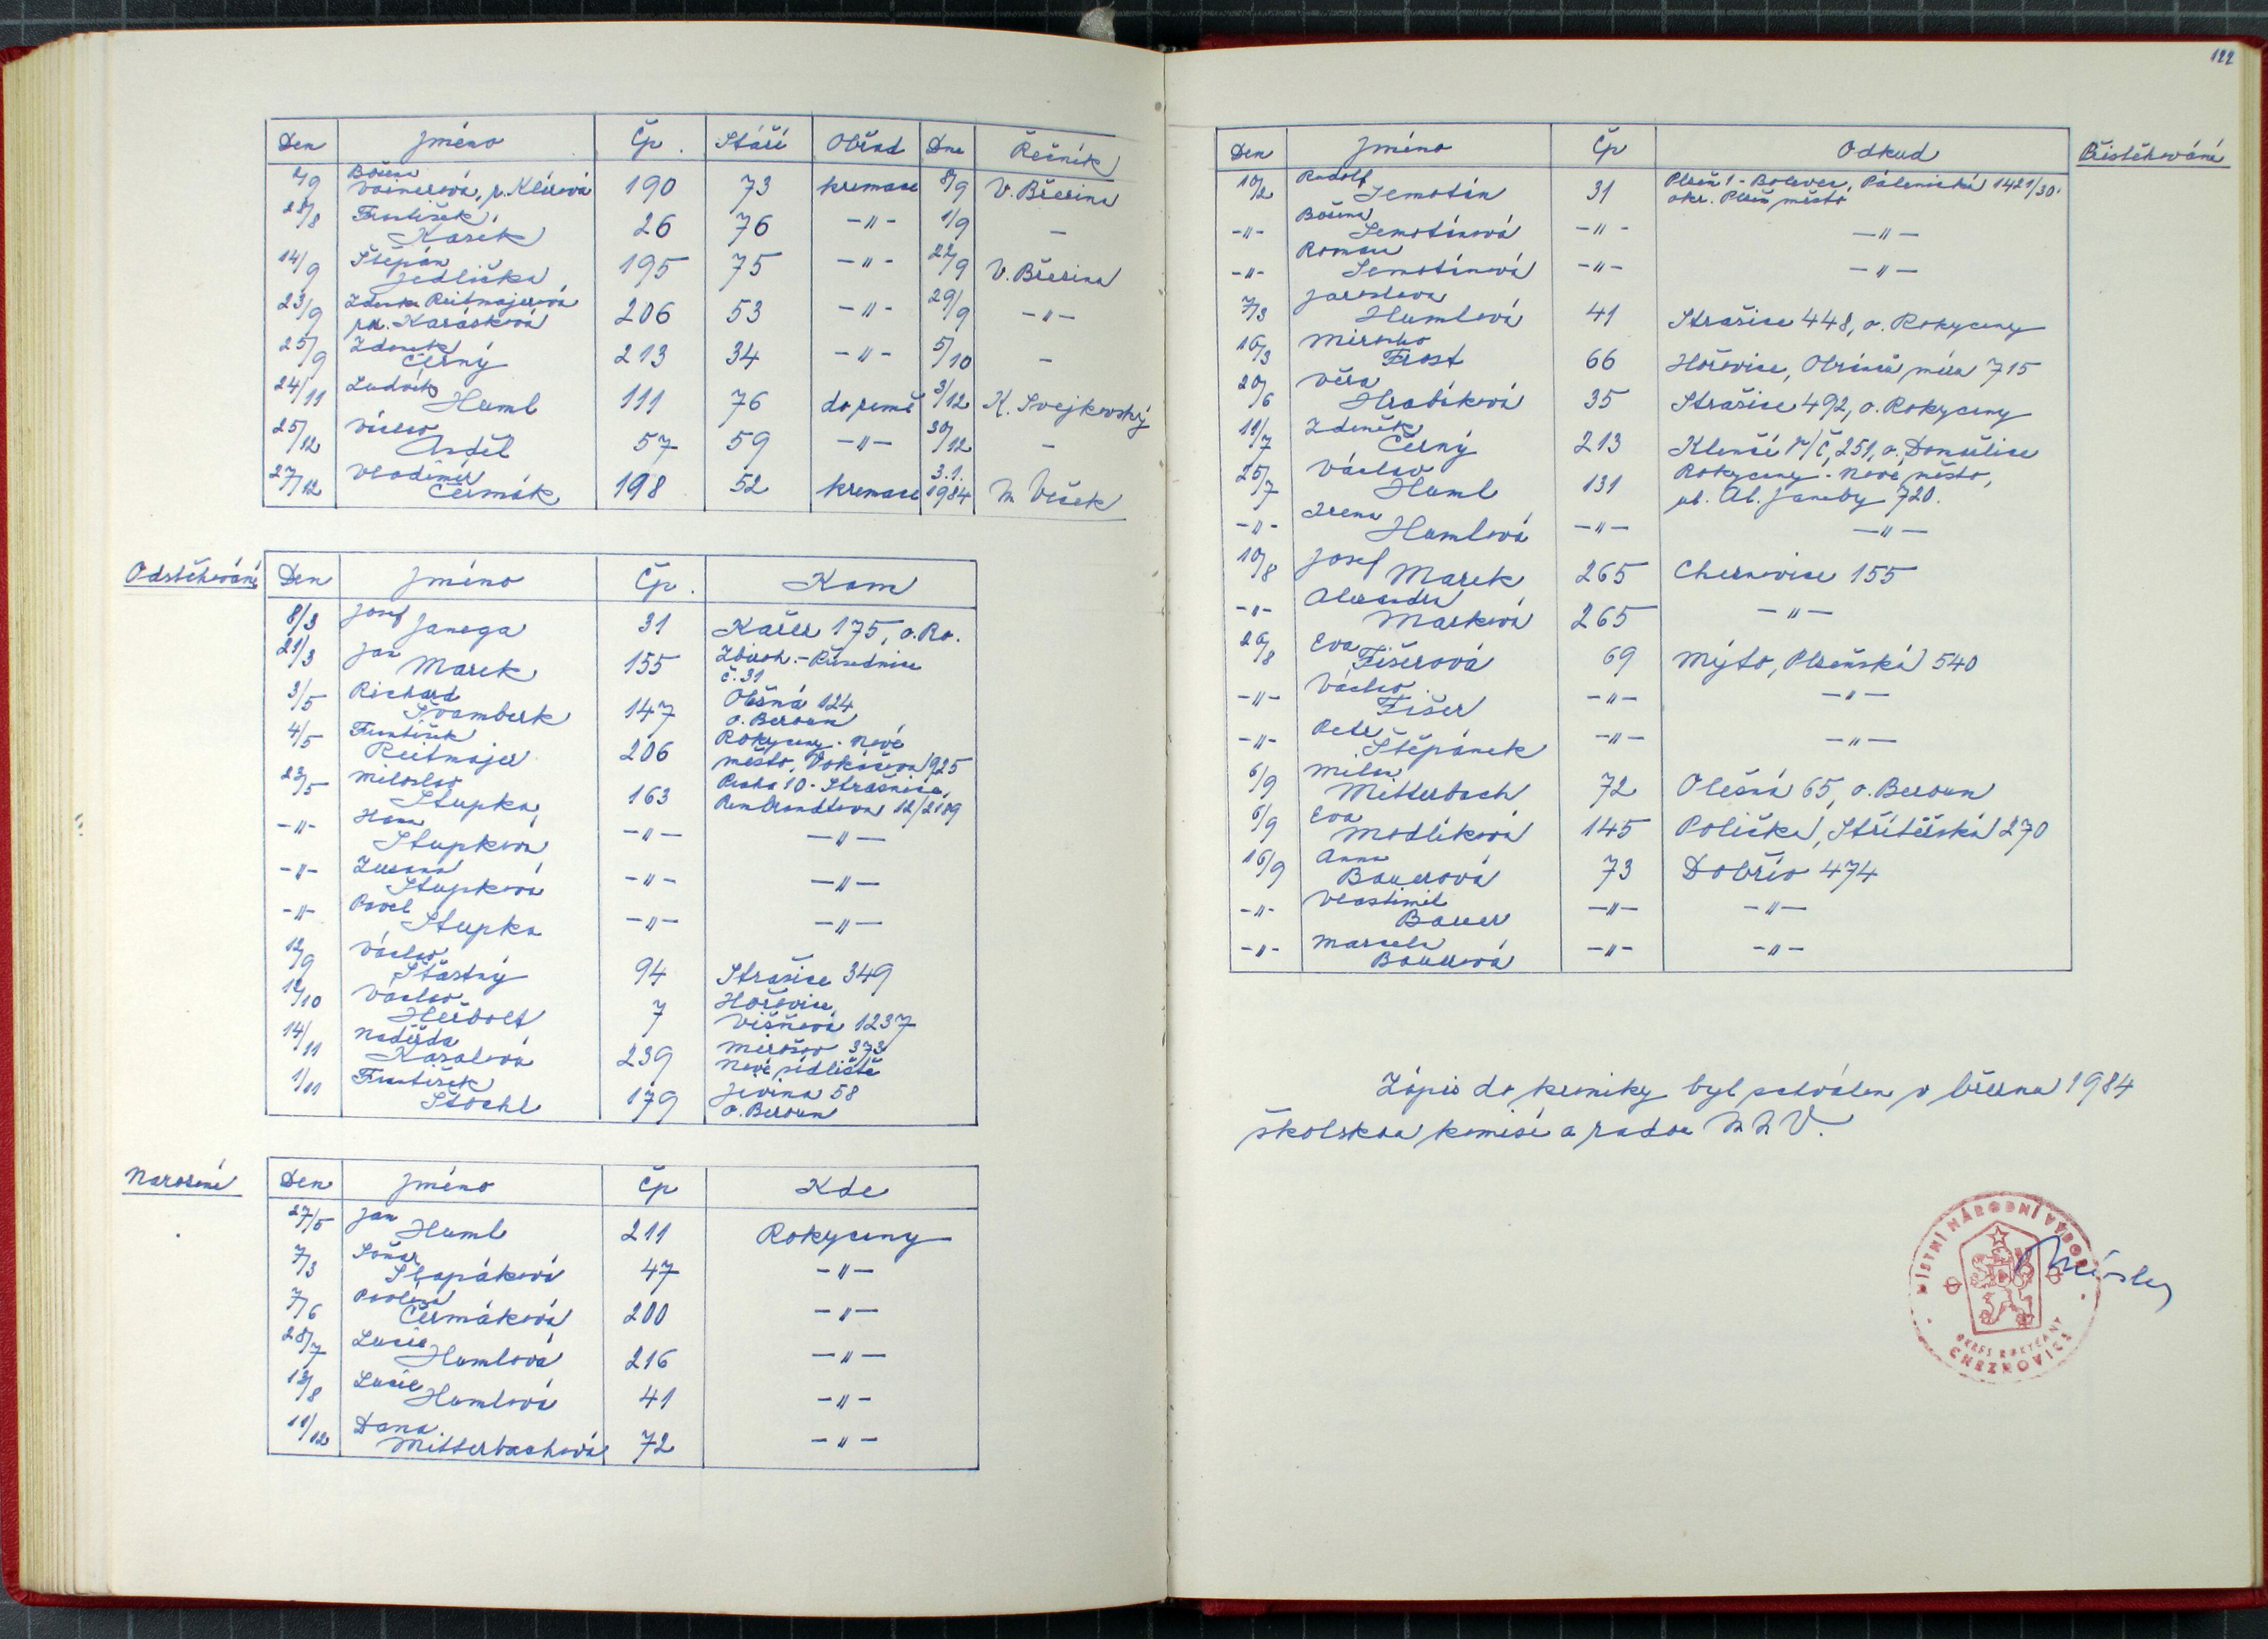 Den Jméno Čp. Stáří Obřad Dne Řečník
2/9 Božena
Vainerová, r. Klírová 190 73 kremace 8/9 V. Březina
28/8 František
Kasík 26 76 -"- 1/9 -
14/9 Štěpán
Jedlička 195 75 -"- 22/9 V. Březina
23/9 Zdenka Reitmajerová
roz. Karásková 206 53 -"- 29/9 -"-
25/9 Zdeněk
Černý 213 34 -"- 5/10 -
24/11 Ludvík
Huml 111 76 do země 3/12 K. Svejkovský
25/12 Václav
Anděl 57 59 -"- 30/12 -
27/12 Vladimír
Čermák 198 52 kremace 3.1.
1984 M. Vlček
Odstěhováni
Den Jméno Čp. Kam
8/3 Josef
Janega 31 Kařez 175, o. Ro.
21/3 Jan
Marek 155 Zbiroh -
č. 31
3/5 Richard
Švamberk 147 Olešná 124
o. Beroun
4/5 František
Reitmajer 206 Rokycany - Nové
město, 925
23/5 Miloslav
Stupka 163 Praha 10 - Strašnice,
Rembrandtova 12/2189
-"- Hana
Stupková -"- -"-
-"- Zuzana
Stupková -"- -"-
-"- Pavel
Stupka -"- -"-
12/9 Václav
Šťastný 94 Strašice 349
12/10 Václav
Herbolt 7 Hořovice,
Višňová 1237
14/11 Naděžda
Kasalová 239 Mirošov 373
Nové sídliště
1/11 František
Štochl 179 Jivina 58
o. Beroun
Narození
Den Jméno Čp Kde
27/5 Jan
Huml 211 Rokycany
7/3 Soňa
Šlapáková 47 -"-
7/6 Pavlína
Čermáková 200 -"-
28/7 Lucie
Humlová 216 -"-
13/8 Lucie
Humlová 41 -"-
11/12 Dana
Mitterbachová 72 -"-
122
Přistěhováni
Den Jméno Čp Odkud
10/2 Rudolf
Semotán 31 Plzeň 1 - Bolevec, Pálenická 1421/30.
okr. Plzeň město
-"- Božena
Semotánová -"- -"-
-"- Romana
Semotánová -"- -"-
7/3 Jaroslava
Humlová 41 Strašice 448, o. Rokycany
16/3 Mirosla
Frost 66 Hořovice, Obránců míru 715
20/6 Věra
Hrabíková 35 Strašice 492, o. Rokycany
11/7 Zdeněk
Černý 213 Klenčí p/Č, 251, o. Domažlice
25/7 Václav
Huml 131 Rokycany - Nové město,
ul. Al. Janeby 720.
-"- Irena
Humlová -"- -"-
10/8 Josef
Marek 265 Cheznovice 155
-"- Alexandra
Marková 265 -"-
26/8 Eva
Fišerová 69 Mýto, Plzeňská 540
-"- Václav
Fišer -"- -"-
-"- Petr
Štěpánek -"- -"-
6/9 Milan
Mitterbach 72 Olešná 65, o. Beroun
6/9 Eva
Modlíková 145 Polička, Střítěžská 270
16/9 Anna
Bauerová 73 Dobřív 474
-"- Vlastimil
Bauer -"- -"-
-"- Marcela
Bauerová -"- -"-
Zápis do kroniky byl schválen v březnu 1984
školskou komisí a radou MNV.
MÍSTNÍ NÁRODNÍ VÝBOR
OKRES ROKYCANY
CHEZNOVICE